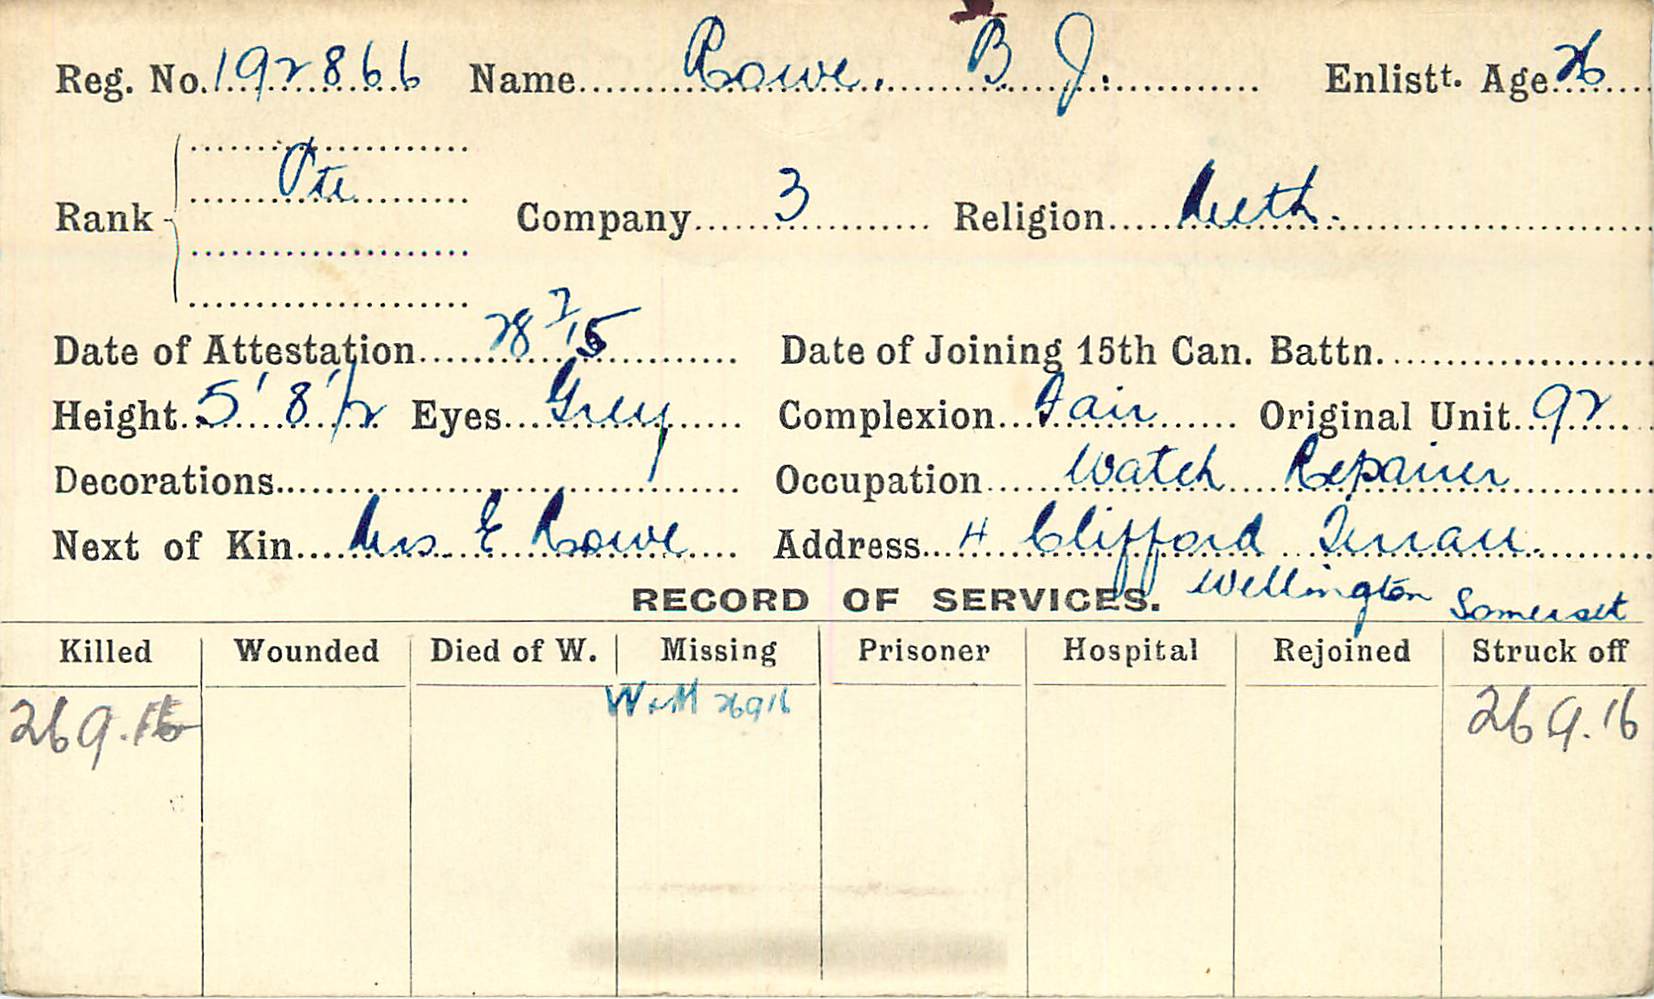 Reg. No. 192866 Name Rowe, B. J. Enlistt. Age 26
Rank Pte Company 3 Religion Meth.
Date of Attestation 28 7/15 Date of Joining 15th Can. Battn.
Height 5' 8 1/2 Eyes Grey Complexion Fair Original Unit 92
Decorations Occupation Watch Repairer
Next of Kin Mrs E Rowe Address 4 Clifford Terrace.
RECORD OF SERVICES. Wellington Somerset
Killed Wounded Died of W. Missing Prisoner Hospital Rejoined Struck off
26 9.16 W & M 26 9 16 26 9.16